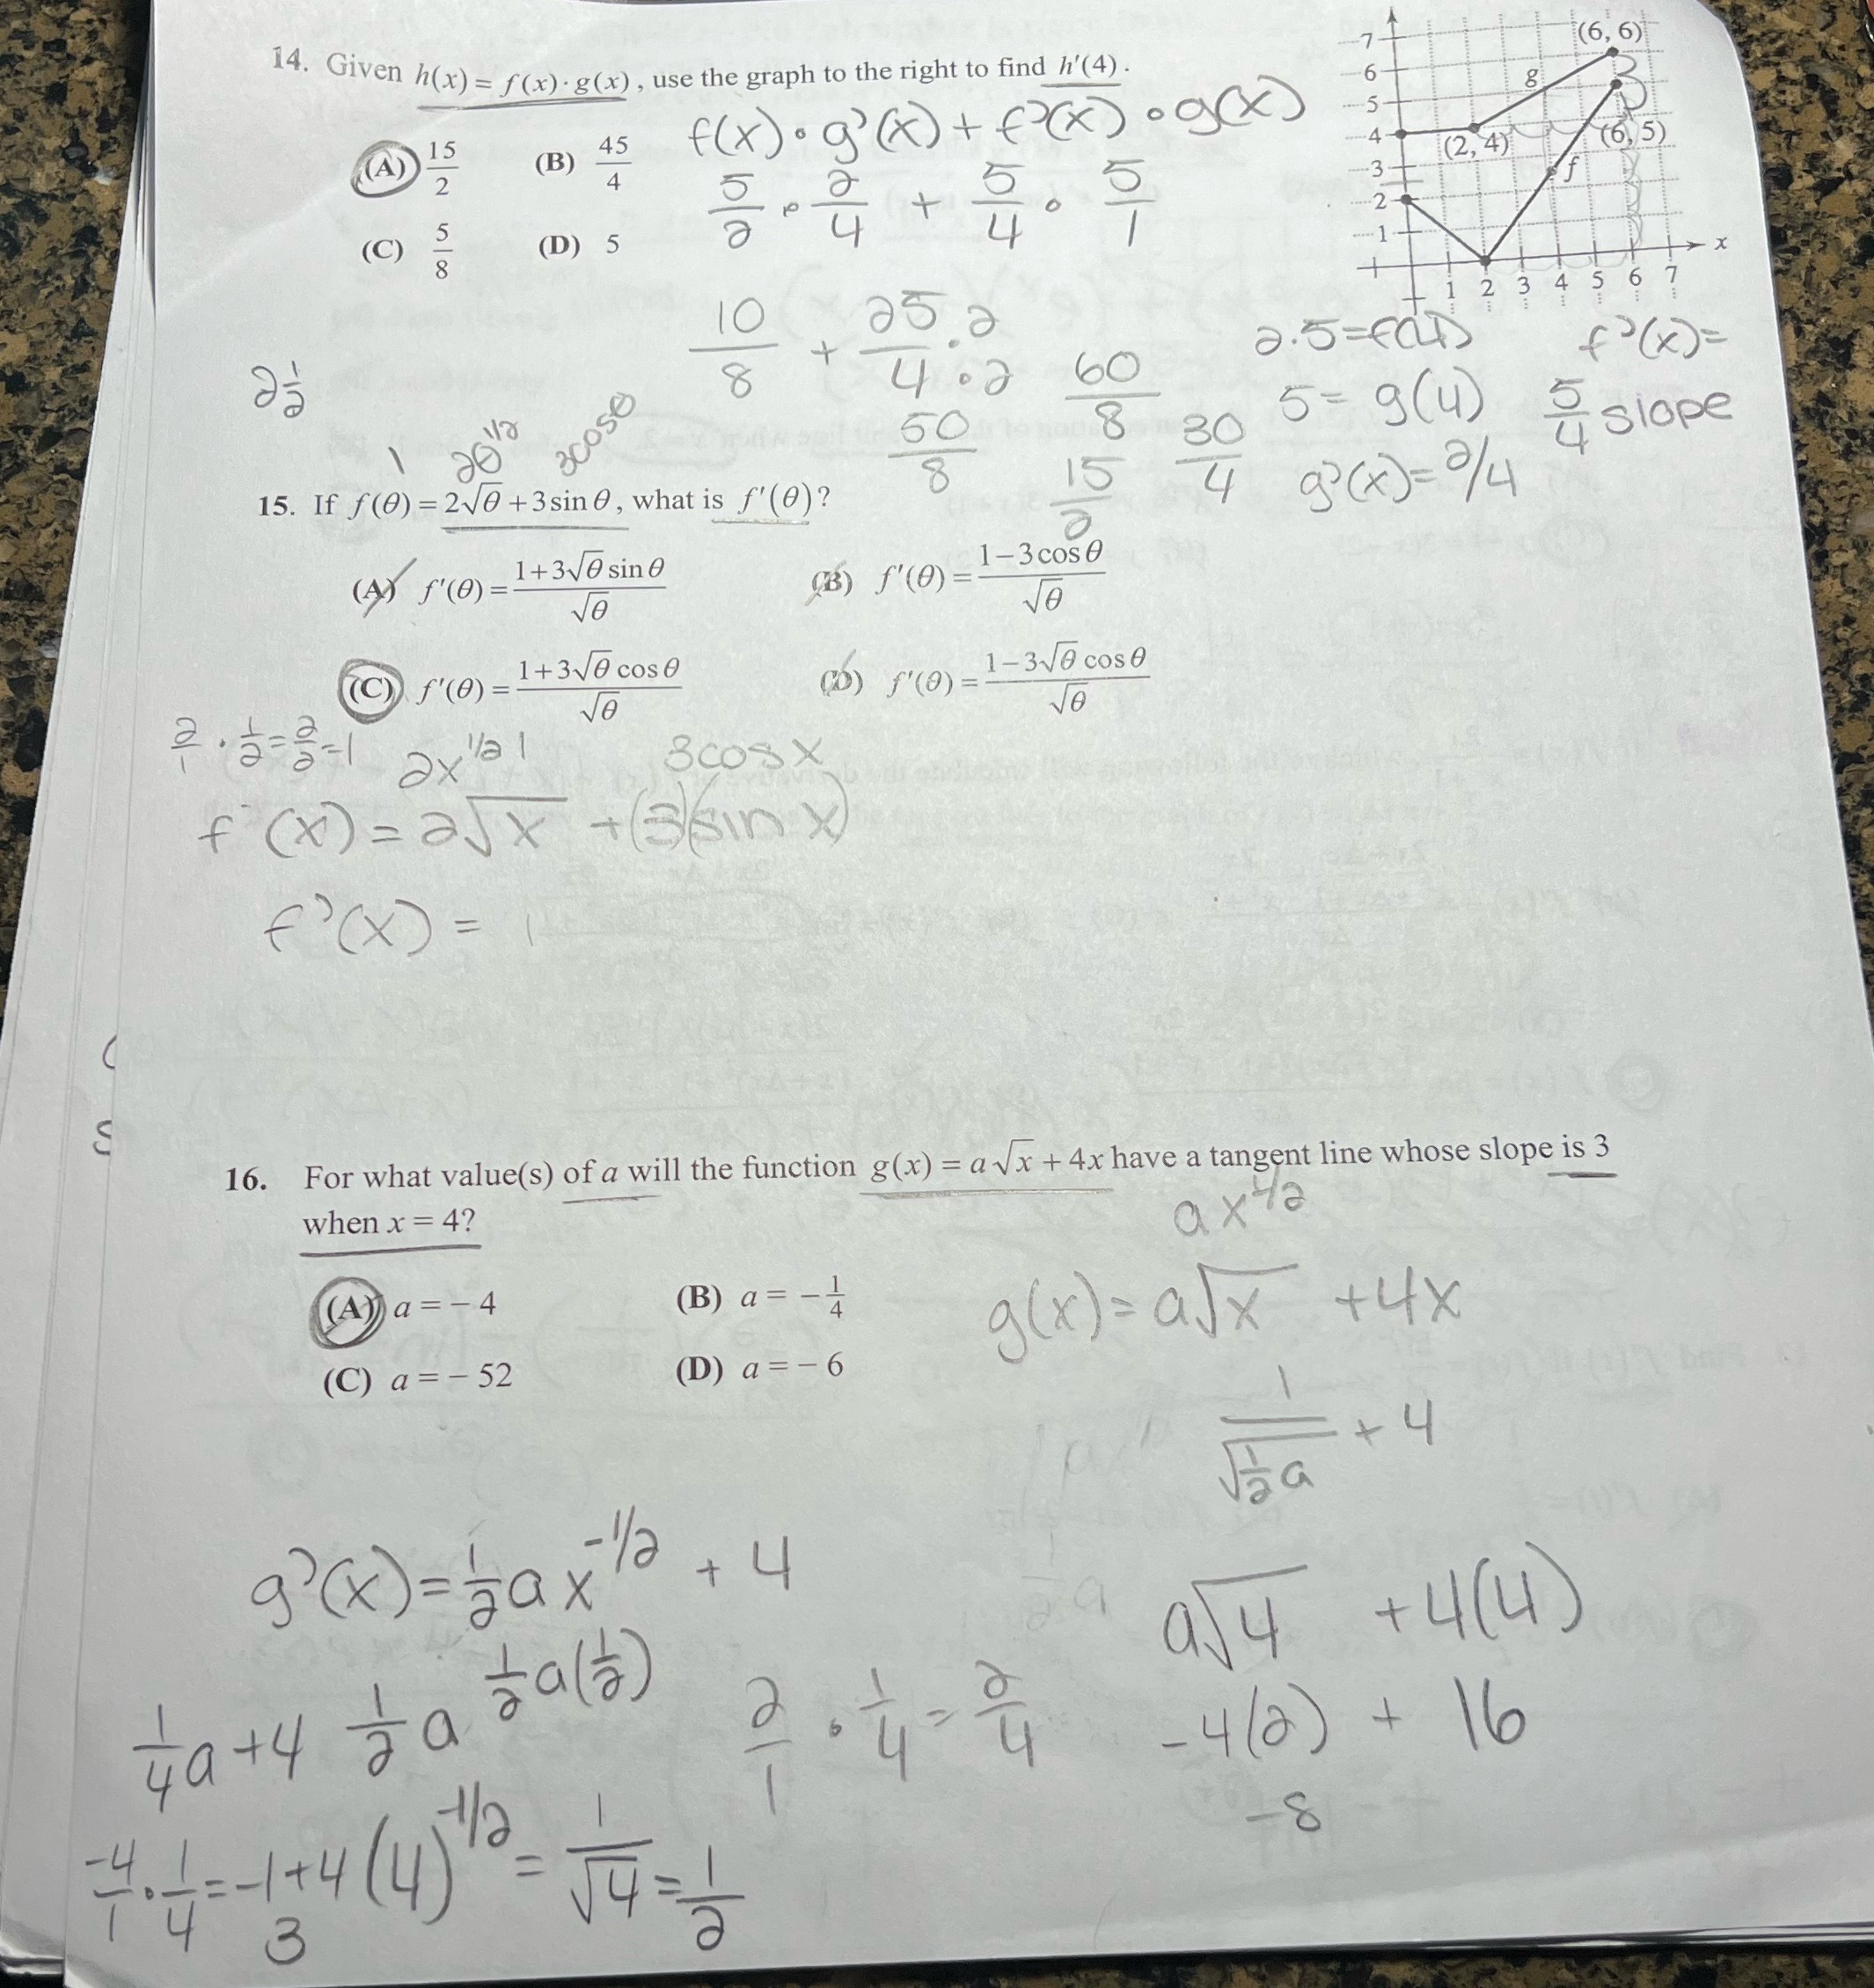 14. Given h(x) = f(x) · g(x), use the graph to the right to find h'(4).
(A) 15/2 (B) 45/4
(C) 5/8 (D) 5
f(x) · g'(x) + f'(x) · g(x)
5/2 · 2/4 + 5/4 · 5/1
10/8 + 25·2/4·2
50/8
60/8
30/4
15/2
2 1/2
7
6
5
4
3
2
1
(6, 6)
g
(2, 4)
(6, 5)
f
x
1 2 3 4 5 6 7
2.5=f(4)
5= g(4)
g'(x)= 2/4
f'(x)=
5/4 slope
1
2θ^1/2
3cosθ
15. If f(θ) = 2√θ + 3 sin θ, what is f'(θ)?
(A) f'(θ) = 1+3√θ sin θ/√θ (B) f'(θ) = 1−3cosθ/√θ
(C) f'(θ) = 1+3√θ cosθ/√θ (D) f'(θ) = 1−3√θ cosθ/√θ
2/1 · 1/2 = 2/2 = 1
2x^1/2 1
3cosx
f (x) = 2√x + (3)(sin x)
f'(x) = 1
16. For what value(s) of a will the function g(x) = a√x + 4x have a tangent line whose slope is 3
when x = 4?
(A) a = − 4 (B) a = − 1/4
(C) a = − 52 (D) a = − 6
ax^1/2
g(x) = a√x + 4x
1/√1/2a + 4
g'(x) = 1/2 a x^-1/2 + 4
1/2 a(1/2)
1/4 a + 4 1/2 a
2/1 · 1/4 = 2/4
a√4 + 4(4)
-4(2) + 16
-8
-4/1 · 1/4 = -1+4
3
(4)^-1/2 = 1/√4 = 1/2